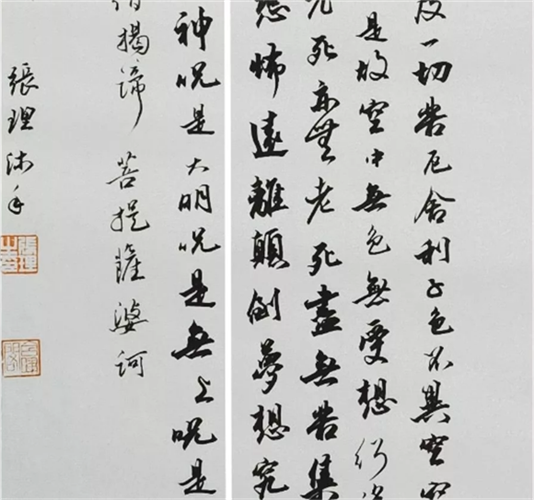 度一切苦厄舍利子色不異空空
是故空中無色無受想行
死亦無老死盡無苦集
恐怖遠離顛倒夢想究
神呪是大明呪是無上呪是
揭諦菩提薩婆訶
張理沐手